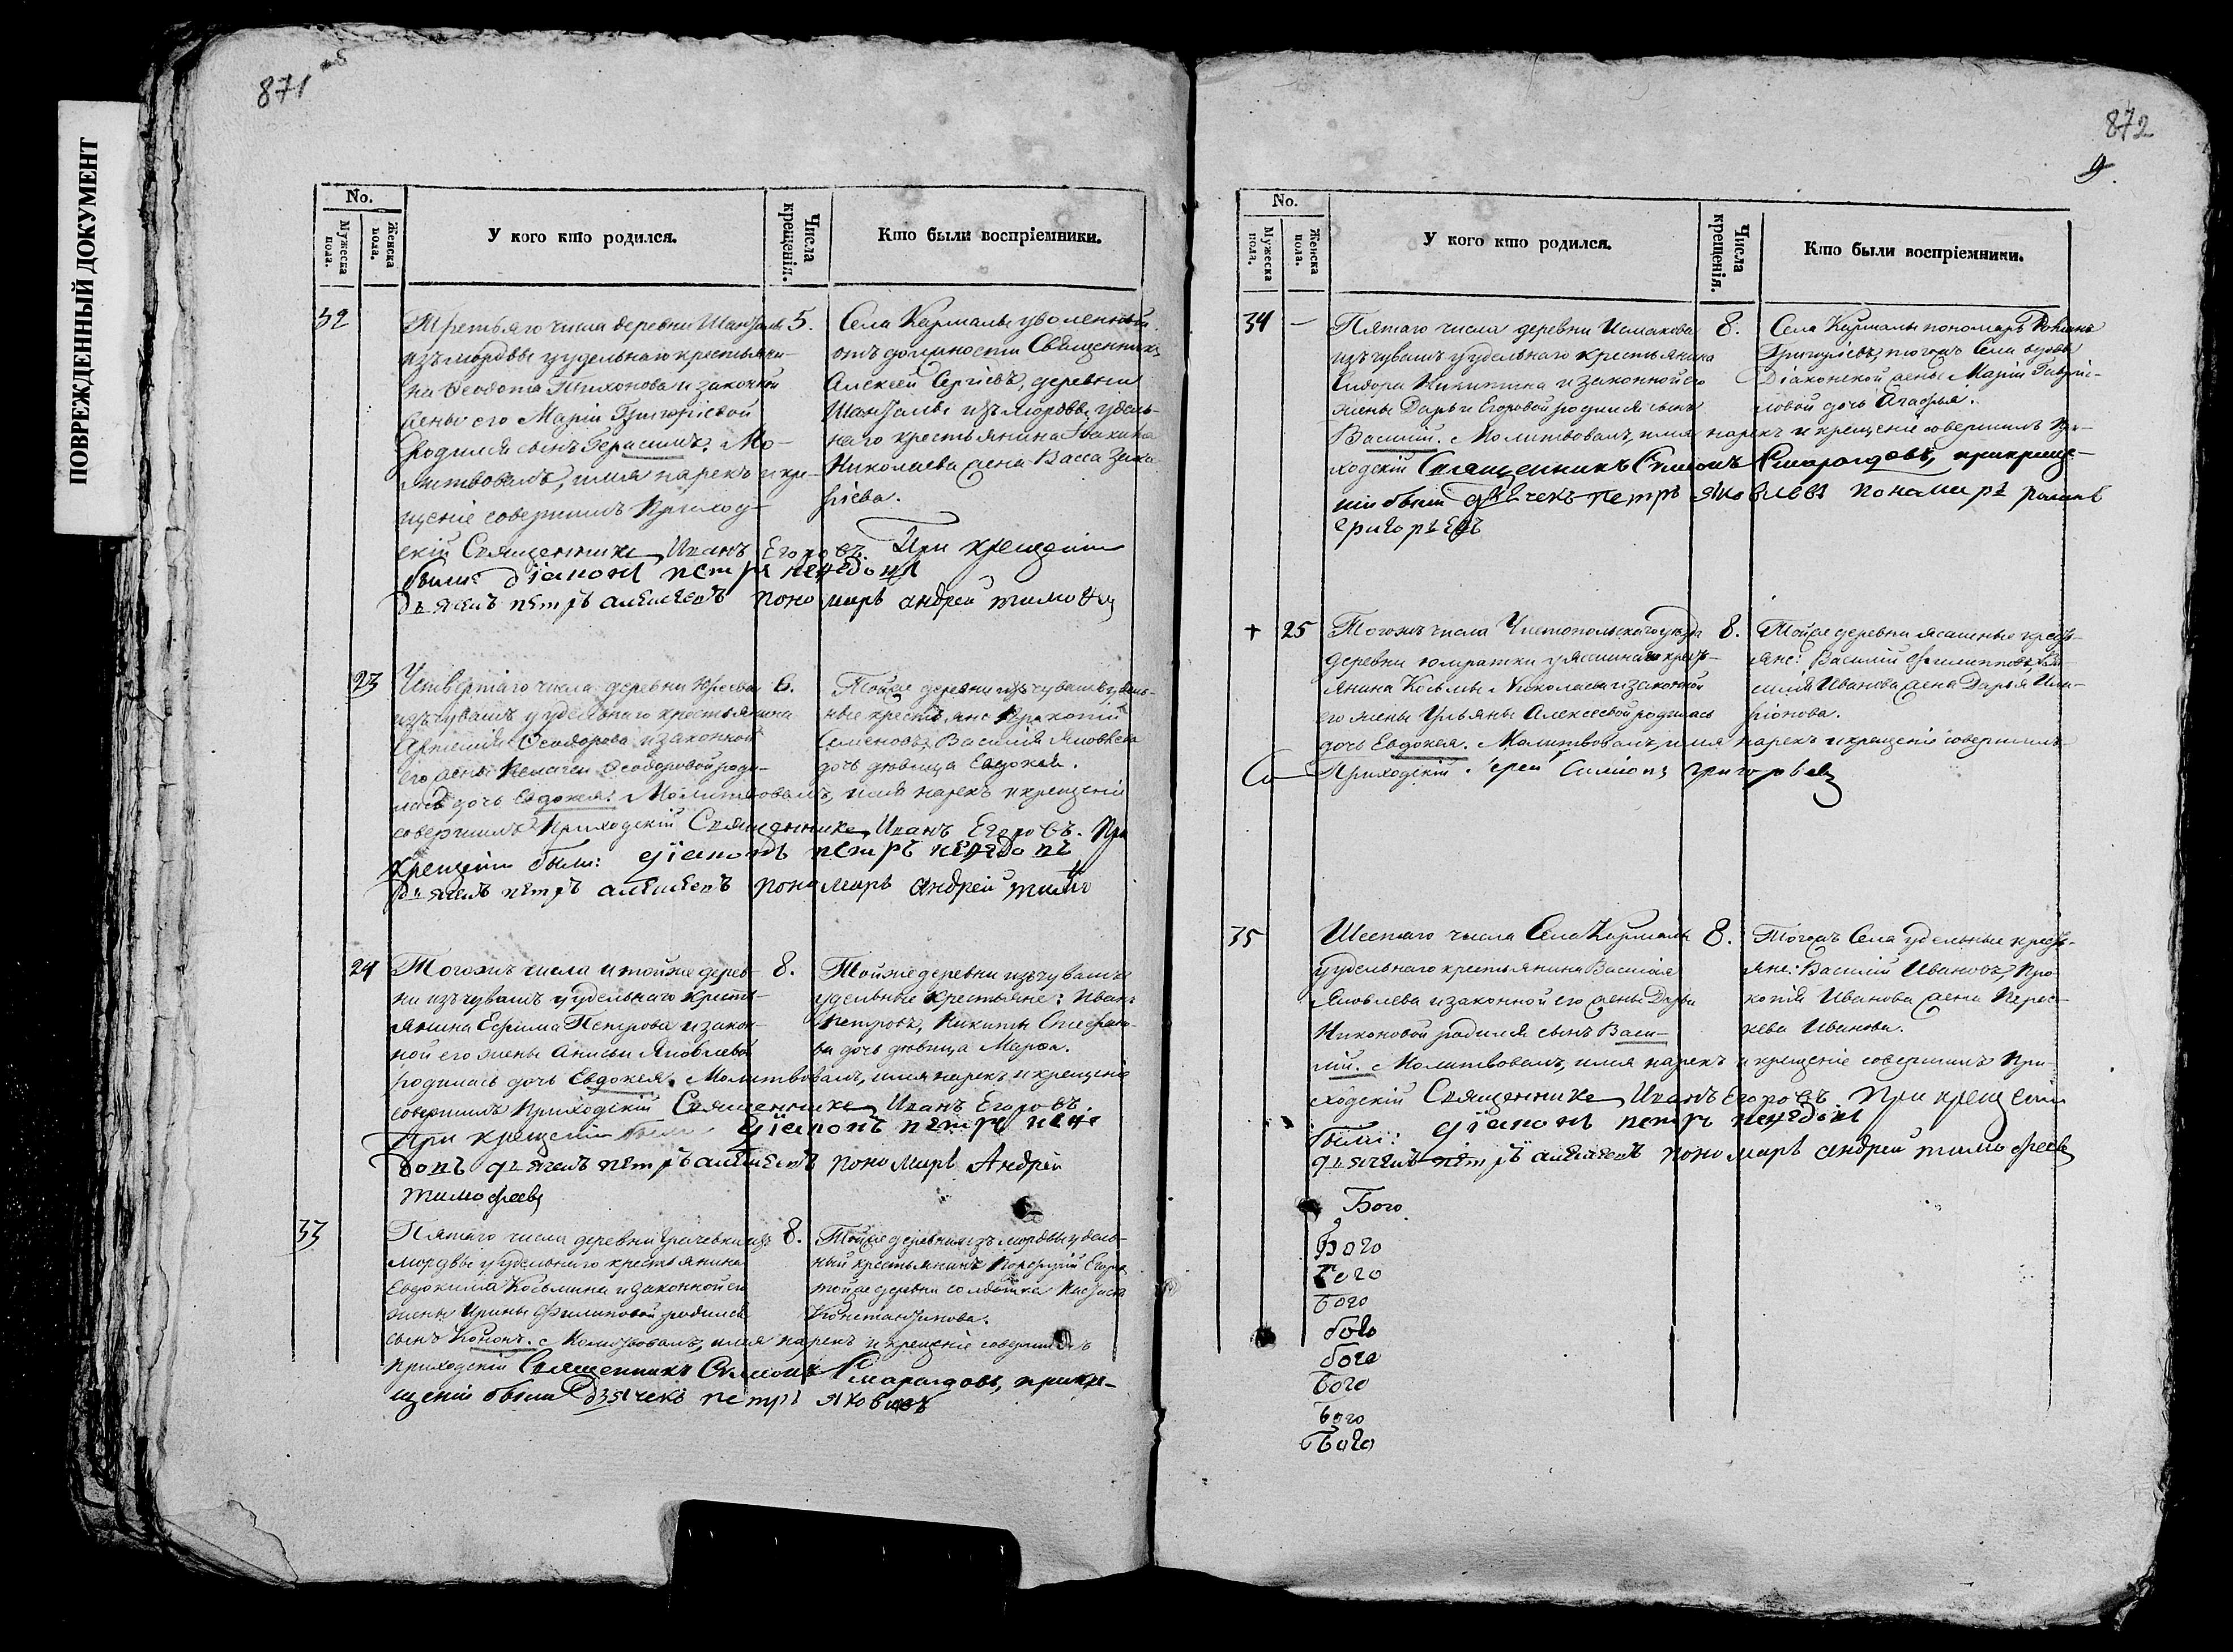 ПОВРЕЖДЕННЫЙ ДОКУМЕНТ
871 об
No.
Мужеска пола.
Женска пола.
У кого кто родился.
Числа крещенія.
Кто были воспріемники.
32
Третьяго числа деревни Шанталы 5.
изъ мордвы у удельнаго крестьяни-
на Ѳеодота Тихонова и законной
жены его Маріи Григоріевой
родился сынъ Герасимъ. Мо-
литвовалъ, имя нарекъ и кре-
щеніе совершилъ Приход-
скій Священникъ Иванъ Егоровъ. При крещеніи
были: діаконъ петръ
дьячекъ петръ алексеевъ пономарь андрей тимоѳ
Села Кармалы уволенный
отъ должности Священникъ
Алексей Сергіевъ, деревни
Шанталы изъ мордвы удель-
наго крестьянина
Николаева жена Васса Заха-
ріева.
23
Четвертаго числа деревни 6.
изъ чувашъ у удельнаго крестьянина
Артемія Ѳеодорова и законной
его жены Пелагеи Ѳеодоровой роди-
лась дочь Евдокея. Молитвовалъ, имя нарекъ и крещеніе
совершилъ Приходскій Священникъ Иванъ Егоровъ. При
крещеніи были: діаконъ петръ
дьячекъ петръ алексеевъ пономарь андрей тимо
Тойже деревни изъ чувашъ удель-
ные крестьяне Прокопій
Семеновъ, Василія Яковлева
дочь девица Евдокея.
24
Тогожъ числа и тойже дерев- 8.
ни изъ чувашъ у удельнаго кресть-
янина Ефима Петрова и закон-
ной его жены Анисьи Яковлевой
родилась дочь Евдокея. Молитвовалъ, имя нарекъ и крещеніе
совершилъ Приходскій Священникъ Иванъ Егоровъ
При крещеніи были діаконъ петръ
дьячекъ петръ алексеевъ пономарь Андрей
тимофеевъ
Тойже деревни изъ чувашъ
удельные крестьяне: Иванъ
Петровъ, Никиты Стефано-
ва дочь девица Марѳа.
33
Пятаго числа деревни Грачевки изъ 8.
мордвы у удельнаго крестьянина
Евдокима Косьмина и законной его
жены Ирины Филиповой родился
сынъ Кононъ. Молитвовалъ, имя нарекъ и крещеніе совершилъ
приходскій Священникъ Симеонъ Смарагдовъ, при кре-
щеніи былъ дьячекъ петръ яковлевъ
Тойже деревни изъ мордвы удель-
ный крестьянинъ Порфирій Егоро
тойже деревни солдатка
Константинова.
872
9.
No.
Мужеска пола.
Женска пола.
У кого кто родился.
Числа крещенія.
Кто были воспріемники.
34 —
Пятаго числа деревни Исмакова 8.
изъ чувашъ у удельнаго крестьянина
Сидора Никитина и законной его
жены Дарьи Егоровой родился сынъ
Василій. Молитвовалъ, имя нарекъ и крещеніе совершилъ При-
ходскій Священникъ Симеонъ Смарагдовъ, при креще-
ніи были дьячекъ петръ яковлевъ понамарь раманъ
григорьевъ
Села Кармалы пономарь Романъ
Григоріевъ, тогожъ Села вдовы
Діаконской жены Маріи Гаври-
ловой дочь Агафья.
+ 25
Тогожъ числа Чистопольскаго уезда 8.
деревни юлратки у ясашнаго кресть-
янина Косьмы Николаева и законной
его жены Ульяны Алексеевой родилась
дочь Евдокея. Молитвовалъ, имя нарекъ и крещеніе совершилъ
Приходскій іерей Симіонъ григорьевъ
Тойже деревни ясашные кресть-
яне: Василій Филипповъ,
Иванова жена Дарья Ила-
ріонова.
35
Шестаго числа Села Кармалы 8.
у удельнаго крестьянина Василія
Яковлева и законной его жены Дарьи
Никоновой родился сынъ Васи-
лій. Молитвовалъ, имя нарекъ и крещеніе совершилъ При-
ходскій Священникъ Иванъ Егоровъ. При крещеніи
были: діаконъ петръ
дьячекъ петръ алексеевъ пономарь андрей тимофеевъ
Тогожъ Села удельные кресть-
яне: Василій Ивановъ, Про-
копія Иванова жена Парас-
кева Иванова.
Бого
Бого
Бого
Бого
бого
бого
Бого
Бого
Бого